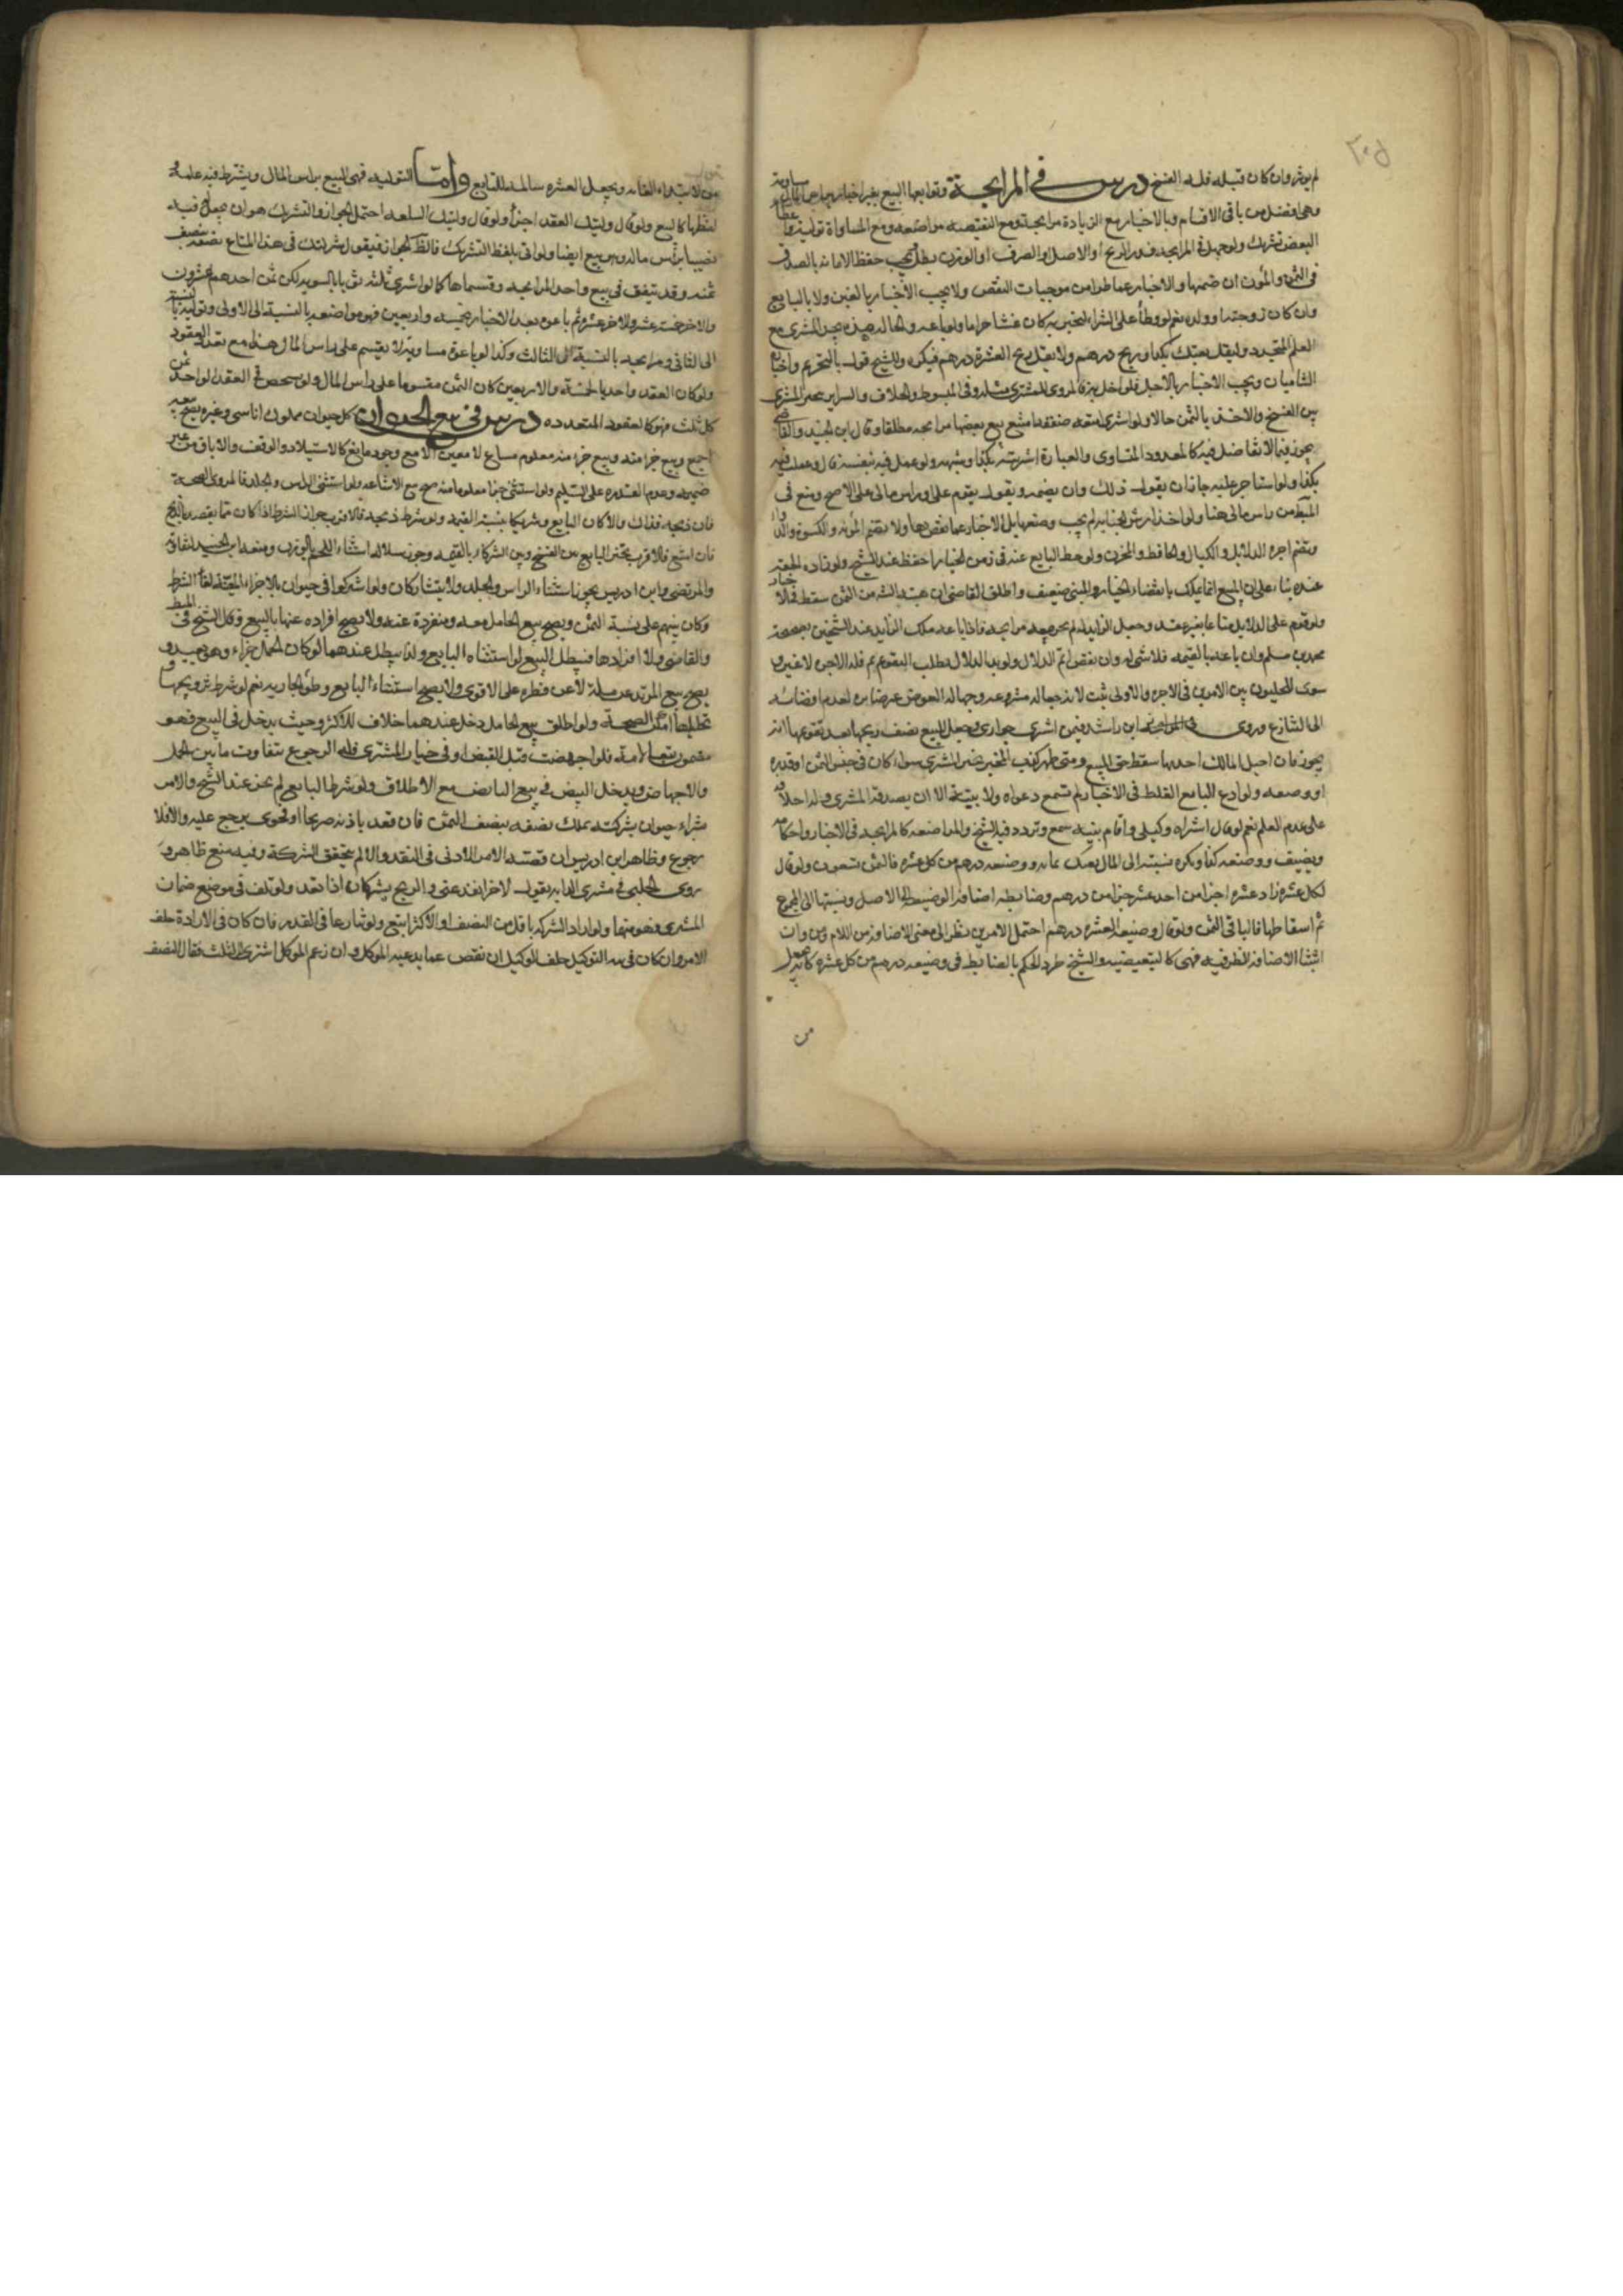 لم يؤثر وان كان قبله فله الفسخ درس في المرابحة وتوابعها البيع بغير اخبار برأس المال مساومة
وهي افضل من باقي الاقسام وبالاخبار مع الزيادة مرابحة ومع النقيصة مواضعة ومع المساواة تولية
البعض تشريك ولو جهل في المرابحة قدر الربح او الاصل او الصرف او الوزن بطل ويجب حفظ الامانة بالصدق
في الثمن والمؤن ان ضمها والاخبار عما طرا من موجبات النقص ولا يجب الاخبار بالغبن ولا بالبايع
وان كان زوجته او ولده نعم لو واطأ على الشراء ليخبر به كان غشا حراما ولو باعه والحال هذه تخير المشتري مع
العلم المتجدد وليقل بعتك بكذا وربح درهم ولا يقل بربح العشرة درهم فيكره وللشيخ قول بالتحريم واختاره
الشاميان ويجب الاخبار بالاجل فلو اخل به فالمروي للمشتري مثله وفي المبسوط والخلاف والسراير تخير المشتري
بين الفسخ والاخذ بالثمن حالا ولو اشترى امتعة صفقة امتنع بيع بعضها مرابحة مطلقا وقال ابن الجنيد والقاضي
يجوز فيما لا تفاضل فيه كالمعدود المتساوي والعبارة اشتريته بكذا وشبهه ولو عمل فيه بنفسه قال وعملت فيه
بكذا ولو استاجر عليه جاز ان يقول ذلك وان يضمه ويقول يقوم علي او راس مالي على الاصح ومنع في
المبسوط من راس مالي هنا ولو اخذ ارش الجناية لم يجب وضعها بل الاخبار عما نقص بها ولا يضم المؤنة والكسوة
ويضم اجرة الدلال والكيال والحافظ والمخزن ولو حط البايع عنه في زمن الخيار احفظ عند الشيخ ولو زاده الحق به
عنده بناء على ان المبيع انما يملك بانقضاء الخيار والمبني ضعيف واطلق القاضي ان هبة الثمن سقط
ولو قوم على الدلال متاعا بغير عقد وجعل الزايد له لم يجز بيعه مرابحة فاذا باعه ملك الزايد عند الشيخين بصحيحة
محمد بن مسلم وان باعه بالقيمة فلا شئ له وان نقص اتم الدلال ولو بدا الدلال بطلب التقويم فله الاجر لا غير
سوى الحلبيون بين الامرين في الاجرة والاولى اثبت لانه جعالة مشروعة وجهالة العوض غير ضايرة لعدم افضائه
الى التنازع وروى ابن راشد فيمن اشترى جواري وجعل للبيع نصف ربحها بعد تقويمها انه
يجوز فان احبل المالك احديها سقط حق البيع ومتى ظهر كذب المخبر تخير المشتري سواء كان في جنس الثمن او قدره
او وصفه ولو ادعى البايع الغلط في الاخبار لم تسمع دعواه ولا بينته الا ان يصدقه المشتري وله احلافه
على عدم العلم نعم لو قال اشتراه وكيلي واقام بينة سمع وتردد فيه الشيخ والمواضعة كالمرابحة في الاخبار واحكامه
ويضيف ووضيعة كذا ويكره نسبته الى المال بعتك بمائة ووضيعة درهم من كل عشرة فالثمن تسعون ولو قال
لكل عشرة زاد عشرة اجزا من احد عشر جزا من درهم وضابطه اضافة الوضيعة الى الاصل ونسبتها الى المجموع
ثم اسقاطها فالباقي الثمن ولو قال وضيعة العشرة درهم احتمل الامرين نظرا الى معنى الاضافة من اللام ومن وان
اثبتنا الاضافة الظرفية فهي كالتبعيضية والشيخ طرد الحكم بالضابط في وضيعة درهم من كل عشرة كانه جعل
من
من لابتداء الغاية ويجعل العشرة سالمة للبايع واما التولية فهي البيع براس المال ويشترط فيه علمه
لفظها كالبيع ولو قال وليتك العقد اجزأ ولو قال وليتك السلعة احتمل الجواز والتشريك هو ان يجعل فيه
نصيبا براس ماله وهو بيع ايضا ولو اتى بلفظ التشريك فالظاهر الجواز فيقول شركتك في هذا المتاع نصفه بنصف
ثمنه وقد يتفق في بيع واحد المرابحة وقسماها كما لو اشترى ثلثة ثوبا بالسوية لكن ثمن احدهم عشرون
والاخر خمسة عشر والاخر عشرة ثم باعوه بعد الاخبار بخمسة واربعين فهو مواضعة بالنسبة الى الاولى وتولية بالنسبة
الى الثاني ومرابحة بالنسبة الى الثالث وكذا لو باعوه مساومة ولا يقسم على راس المال هذا مع تعدد العقود
ولو كان العقد واحدا بالخمسة والاربعين كان الثمن مقسوما على راس المال ولو شخص في العقد الواحد ثمن
كل ثلث فهو كالعقود المتعددة درس في بيع الحيوان كل حيوان مملوك اناسي وغيره يصح بيعه
اجمع وبيع جزء منه معلوم مشاع لا معين الا مع وجود مانع كالاستيلاد والوقف والاباق من غير
ضميمة وعدم القدرة على التسليم ولو استثنى جزا معلوما منه صح مع الاشاعة ولو استثنى الراس والجلد فالمروي الصحة
فان ذبحه فذاك والا كان البايع شريكا بنسبة القيمة ولو شرط ذبحه فالاقرب جواز الشرط اذا كان مما يقصد بالذبح
فان امتنع فالاقرب تخير البايع بين الفسخ وبين الشركة بالقيمة وجوز سلار استثناء اللحم بالوزن ومنعه ابن الجنيد
والمرتضى وابن ادريس يجوز استثناء الراس والجلد ولا يتشاركان ولو اشتركوا في حيوان بالاجزاء المعينة لغا الشرط
وكان بينهم على نسبة الثمن ويصح بيع الحامل معه ومنفردة عنه ولا يصح افراده عنها بالبيع وقال الشيخ في المبسوط
والقاضي ولا افرادها فيبطل البيع لو استثناه البايع ولذا يبطل عندهما لو كان الحمل حرا وهو بعيد و
يصح بيع المرتد عن ملة لا عن فطرة على الاقوى ولا يصح استثناء البايع وطؤ الجارية نعم لو شرط تزويجها
تحليلها امكن الصحة ولو اطلق بيع الحامل دخل عندهما خلافا للاكثر وحيث يدخل في البيع فهو
مضمون فلو اجهضت قبل القبض او في خيار المشتري فله الرجوع بتفاوت ما بين الحمل
والاجهاض ويدخل البيض في بيع البايض مع الاطلاق ولو شرطه البايع لم يجز عند الشيخ والامر
بشراء حيوان بشركته يملك نصفه بنصف الثمن فان نقد باذنه صريحا او فحوى يرجع عليه والا فلا
رجوع وظاهر ابن ادريس ان قضية الامر الاذن في النقد والا لم يتحقق الشركة وفيه منع ظاهر و
روى الحلبي في مشتري الدابة يقول لاخر انقد عني والربح يشتركان اذا نقد ولو تلف في موضع ضمان
المشتري فهو منهما ولو اراد الشركة باقل من النصف او الاكثر اتبع ولو تنازعا في القدر فان كان في الارادة حلف
الامر وان كان في التوكيل حلف الوكيل ان نقص عما يدعيه الموكل وان زعم الموكل اشترى الثلث فقال النصف